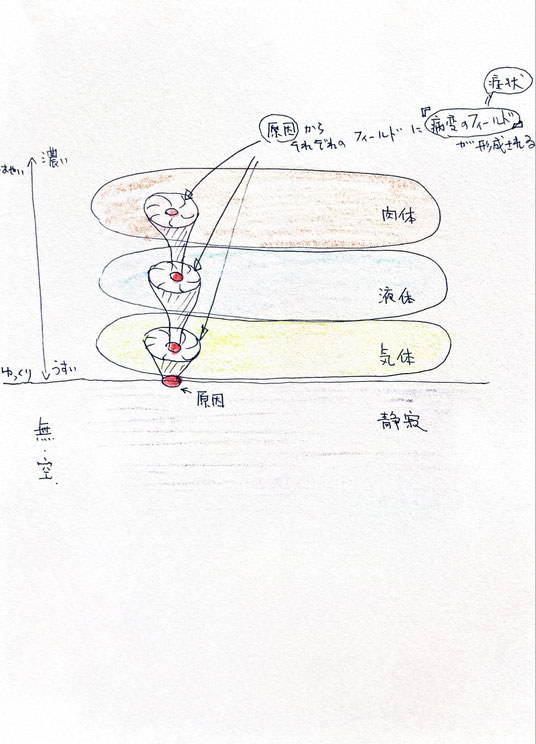 症状
原因から
それぞれのフィールドに『病変のフィールド』
が形成される
はやい 濃い
肉体
液体
気体
ゆっくり うすい
原因
無・空
静寂